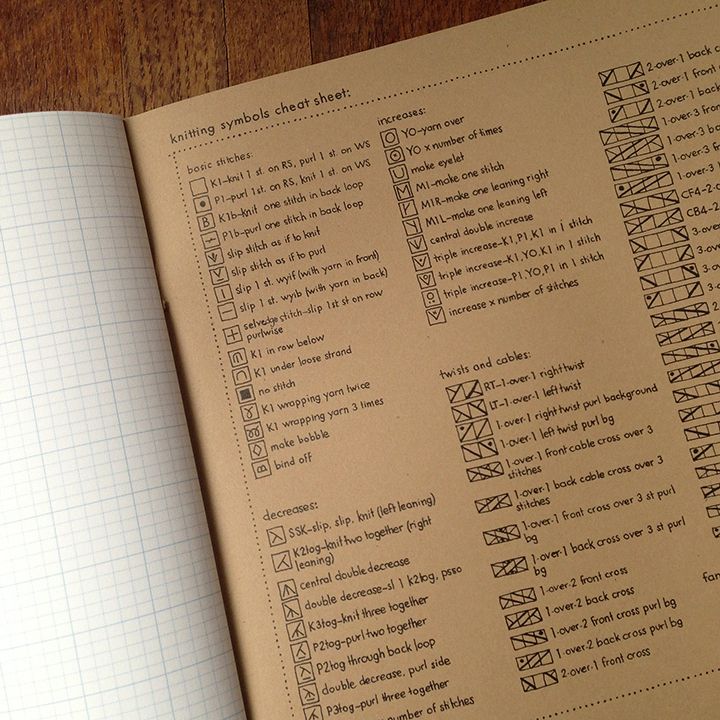 knitting symbols cheat sheet:
basic stitches:
K1-knit 1 st. on RS, purl 1 st. on WS
P1-purl 1st. on RS, knit 1 st. on WS
K1b-knit one stitch in back loop
P1b-purl one stitch in back loop
slip stitch as if to knit
slip stitch as if to purl
slip 1 st. wyif (with yarn in front)
slip 1 st. wyib (with yarn in back)
selvedge stitch-slip 1st st on row
purlwise
K1 in row below
K1 under loose strand
no stitch
K1 wrapping yarn twice
K1 wrapping yarn 3 times
make bobble
B bind off
decreases:
SSK-slip, slip, knit (left leaning)
K2tog-knit two together (right
leaning)
central double decrease
double decrease-sl 1 k2tog, psso
K3tog-knit three together
P2tog-purl two together
P2tog through back loop
double decrease, purl side
P3tog-purl three together
number of stitches
increases:
YO-yarn over
YO x number of times
make eyelet
M1-make one stitch
M1R-make one leaning right
M1L-make one leaning left
central double increase
triple increase-K1,P1,K1 in 1 stitch
triple increase-K1,YO,K1 in 1 stitch
triple increase-P1,YO,P1 in 1 stitch
increase x number of stitches
twists and cables:
RT-1-over-1 right twist
LT-1-over-1 left twist
1-over-1 right twist purl background
1-over-1 left twist purl bg
1-over-1 front cable cross over 3
stitches
1-over-1 back cable cross over 3
stitches
1-over-1 front cross over 3 st purl
bg
1-over-1 back cross over 3 st purl
bg
1-over-2 front cross
1-over-2 back cross
1-over-2 front cross purl bg
1-over-2 back cross purl bg
2-over-1 front cross
2-over-1 back
2-over-1 front
2-over-1 back
1-over-3 front
1-over-3 back
1-over-3
1-over-3
CF4-2-
CB4-2
3-over
3-over
3-over
3-ov
2-o